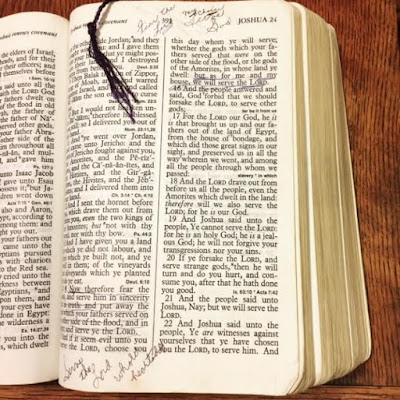 Joshua renews covenant
the elders of Israel,
heads, and for their
their officers; and
themselves before
unto all the
Lord God of
on the other
flood in old
father of
of Na'-
other gods.
your father Abra-
other side of the
throughout all
and multi-
and gave
unto Isaac Jacob
I gave unto Esau
possess it; but
children went down
Moses also and Aaron,
Egypt, according to
among them: and
you out.
your fathers out
came unto the
Egyptians pursued
with chariots
the Red sea.
cried unto the
darkness between
Egyptians, and
upon them, and
your eyes have
done in Egypt:
the wilderness a
Ex. 14:27,28
you into the
which dwelt
392
side Jordan; and they
you: and I gave them
hand, that ye might
land; and I destroyed
from before you.
Then Balak the son of Zippor,
king of Moab, arose and warred
Israel, and sent and called
the son of Beor to curse
I would not hearken un-
therefore he blessed
so I delivered you out of
ye went over Jordan,
and came unto Jericho: and the
men of Jericho fought against you,
the Amorites, and the Pĕr'ĭz-
and the Cā'-năn-ites, and
the Hittites, and the Gir'-gă-
the Hivites, and the Jĕb'-
and I delivered them into
I sent the hornet before
which drave them out from
you, even the two kings of
Amorites; but not with thy
nor with thy bow. Ps. 44:3
I have given you a land
which ye did not labour, and
which ye built not, and ye
in them; of the vineyards
oliveyards which ye planted
ye eat. Deut. 6:10
Now therefore fear the
and serve him in sincerity
in truth: and put away the
which your fathers served on
side of the flood, and in
and serve ye the LORD.
And if it seem evil unto you
the LORD, choose you
Serve
the
Lord
whole
heartedly
JOSHUA 24
this day whom ye will serve;
whether the gods which your fa-
thers served that were on the
other side of the flood, or the gods
of the Amorites, in whose land ye
dwell: but as for me and my
house, we will serve the LORD.
16 And the people answered and
said, God forbid that we should
forsake the LORD, to serve other
gods;
17 For the LORD our God, he it
is that brought us up and our fa-
thers out of the land of Egypt,
from the house of bondage, and
which did those great signs in our
sight, and preserved us in all the
way wherein we went, and among
all the people through whom we
passed:
18 And the LORD drave out from
before us all the people, even the
Amorites which dwelt in the land:
therefore will we also serve the
LORD; for he is our God.
19 And Joshua said unto the
people, Ye cannot serve the LORD:
for he is an holy God; he is a jeal-
ous God; he will not forgive your
transgressions nor your sins.
20 If ye forsake the LORD, and
serve strange gods, then he will
turn and do you hurt, and con-
sume you, after that he hath done
you good. Is. 63:10 Acts 7:42
21 And the people said unto
Joshua, Nay; but we will serve the
LORD.
22 And Joshua said unto the
people, Ye are witnesses against
yourselves that ye have chosen
you the LORD, to serve him. And